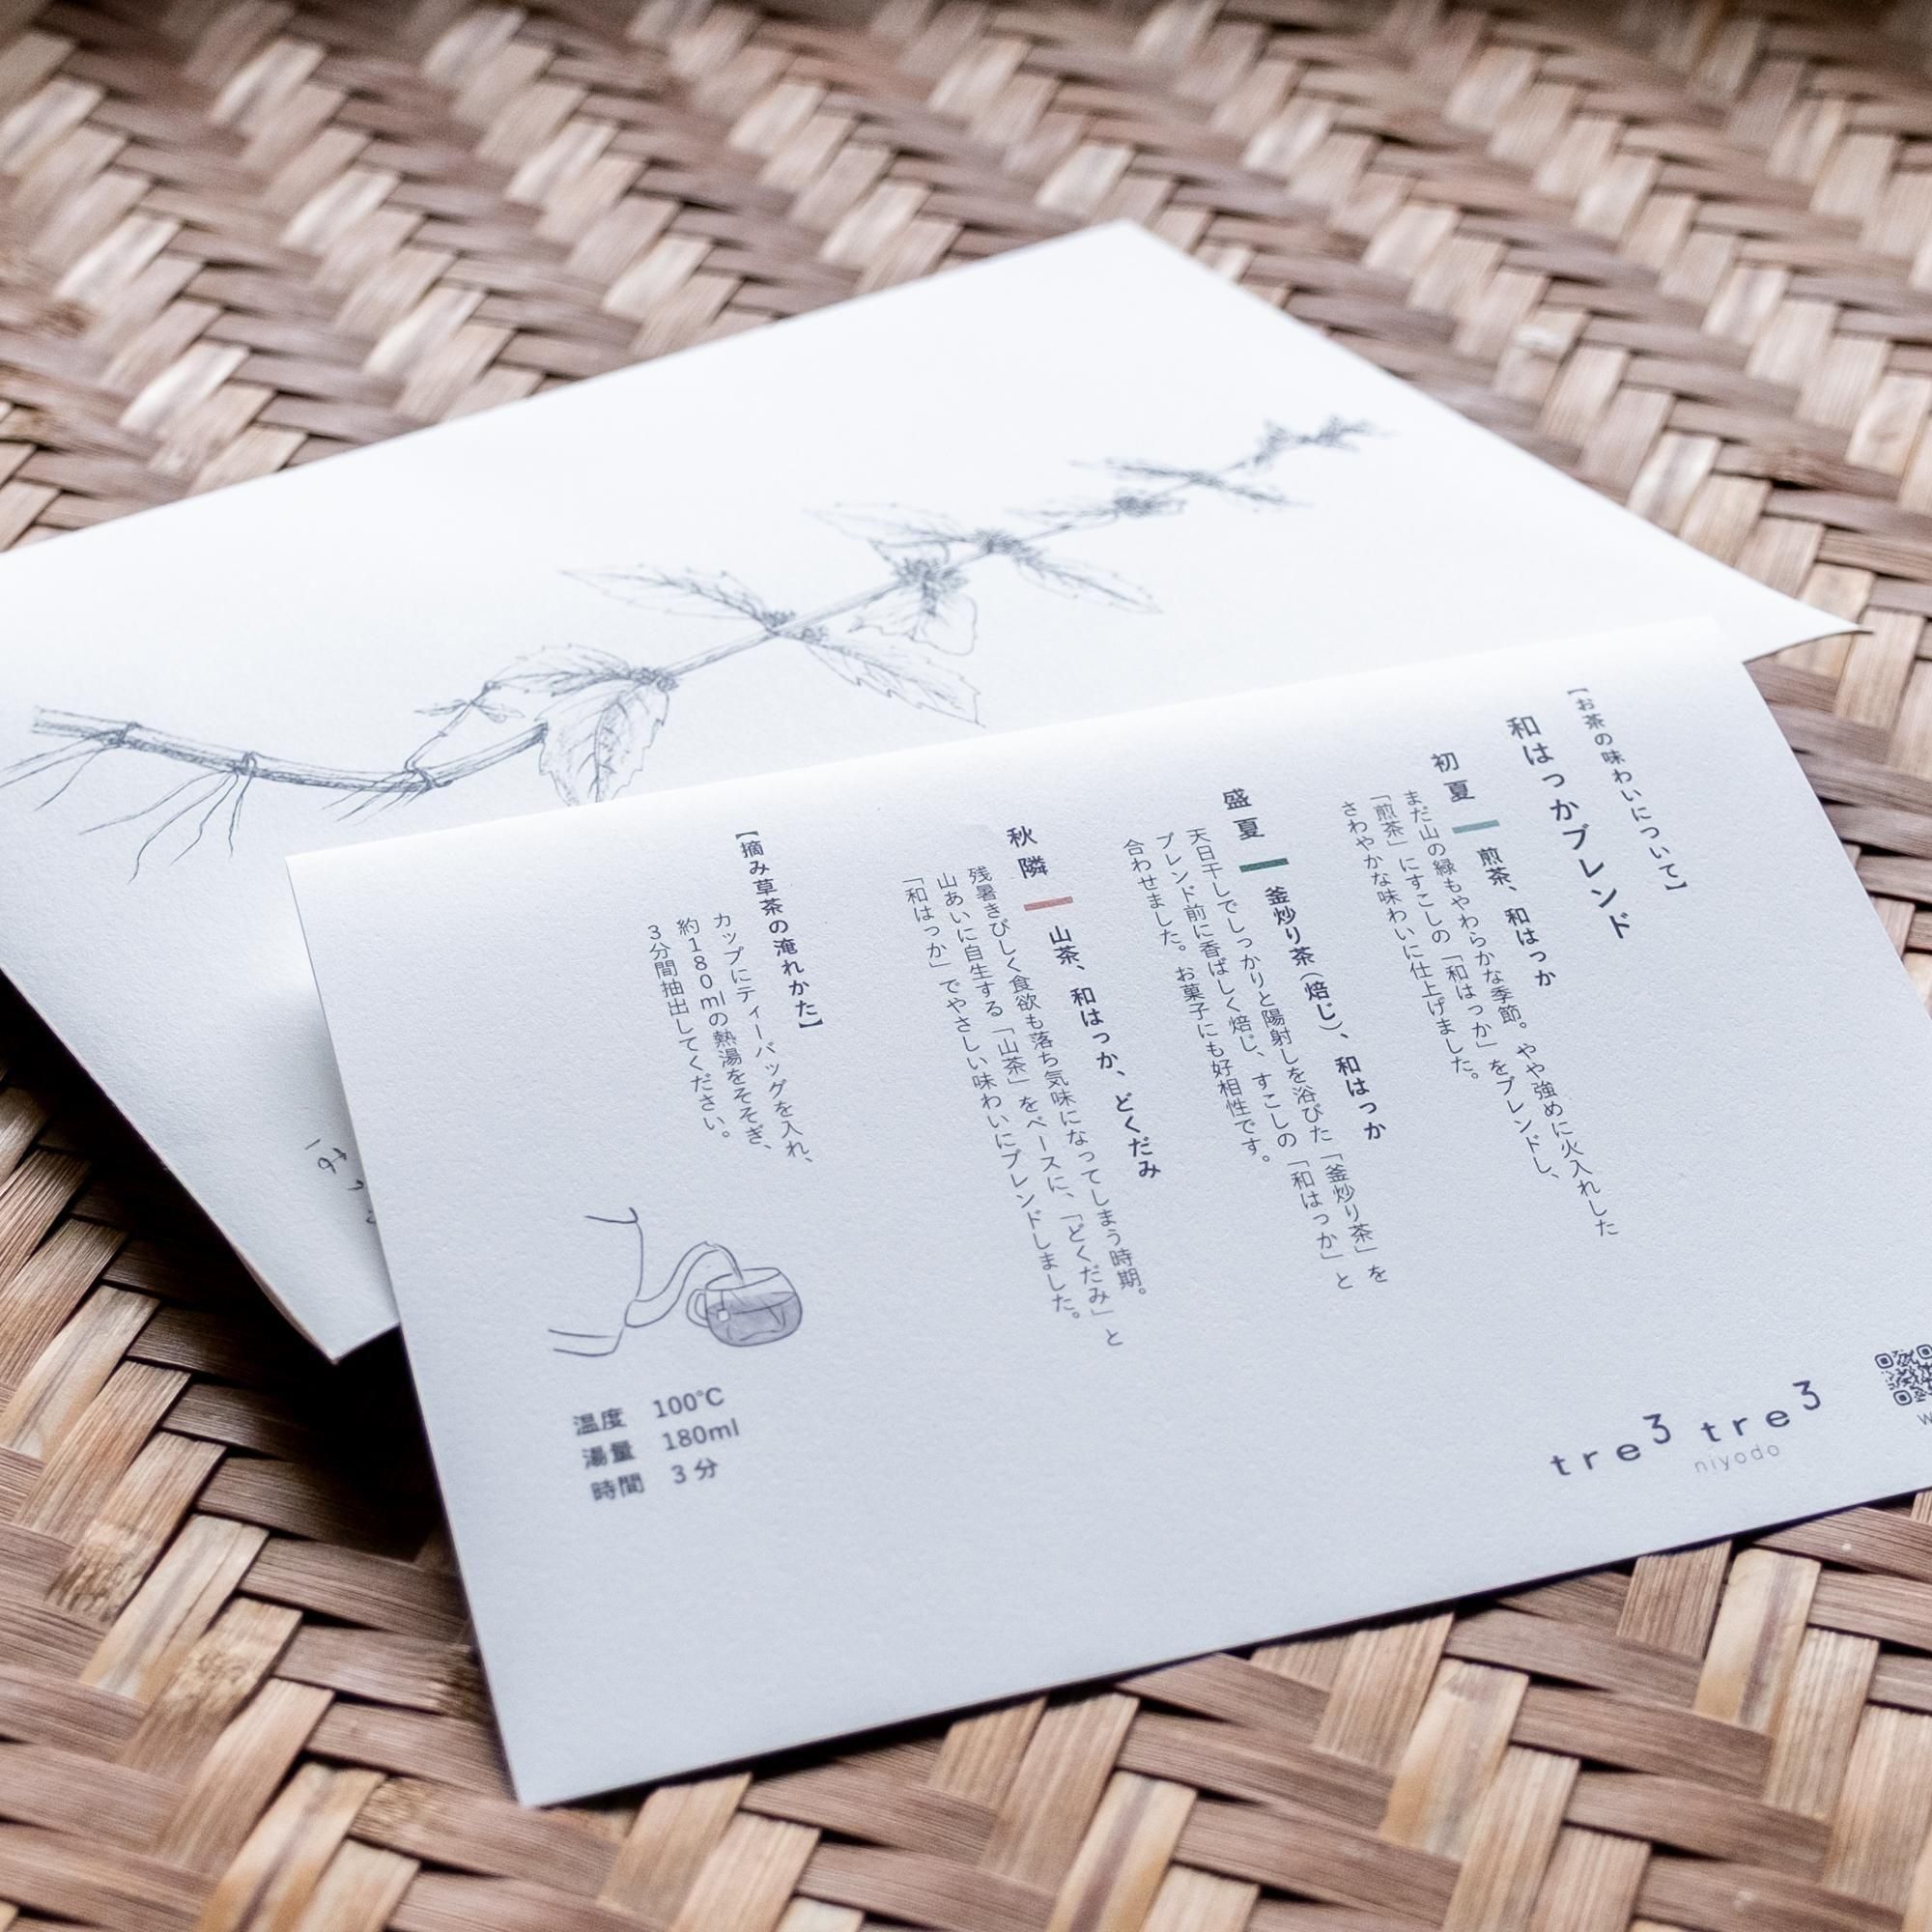 【お茶の味わいについて】
和はっかブレンド
初夏 煎茶、和はっか
まだ山の緑もやわらかな季節。やや強めに火入れした
「煎茶」にすこしの「和はっか」をブレンドし、
さわやかな味わいに仕上げました。
盛夏 釜炒り茶（焙じ）、和はっか
天日干しでしっかりと陽射しを浴びた「釜炒り茶」を
ブレンド前に香ばしく焙じ、すこしの「和はっか」と
合わせました。お菓子にも好相性です。
秋隣 山茶、和はっか、どくだみ
残暑きびしく食欲も落ち気味になってしまう時期。
山あいに自生する「山茶」をベースに、「どくだみ」と
「和はっか」でやさしい味わいにブレンドしました。
【摘み草茶の淹れかた】
カップにティーバッグを入れ、
約180mlの熱湯をそそぎ、
3分間抽出してください。
温度 100℃
湯量 180ml
時間 3分
tre3 tre3
niyodo